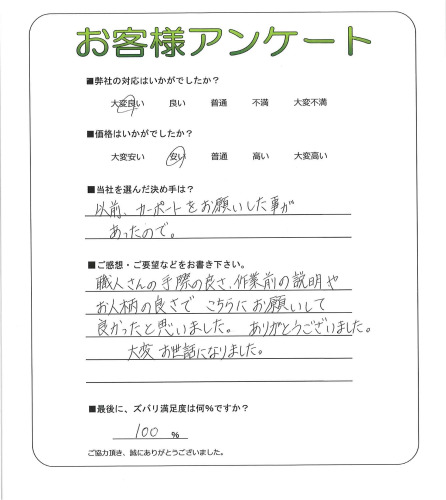 お客様アンケート
■弊社の対応はいかがでしたか？
大変良い 良い 普通 不満 大変不満
■価格はいかがでしたか？
大変安い 安い 普通 高い 大変高い
■当社を選んだ決め手は？
以前、カーポートをお願いした事が
あったので。
■ご感想・ご要望などをお書き下さい。
職人さんの手際の良さ、作業前の説明や
お人柄の良さで こちらにお願いして
良かったと思いました。 ありがとうございました。
大変 お世話になりました。
■最後に、ズバリ満足度は何%ですか？
100 %
ご協力頂き、誠にありがとうございました。